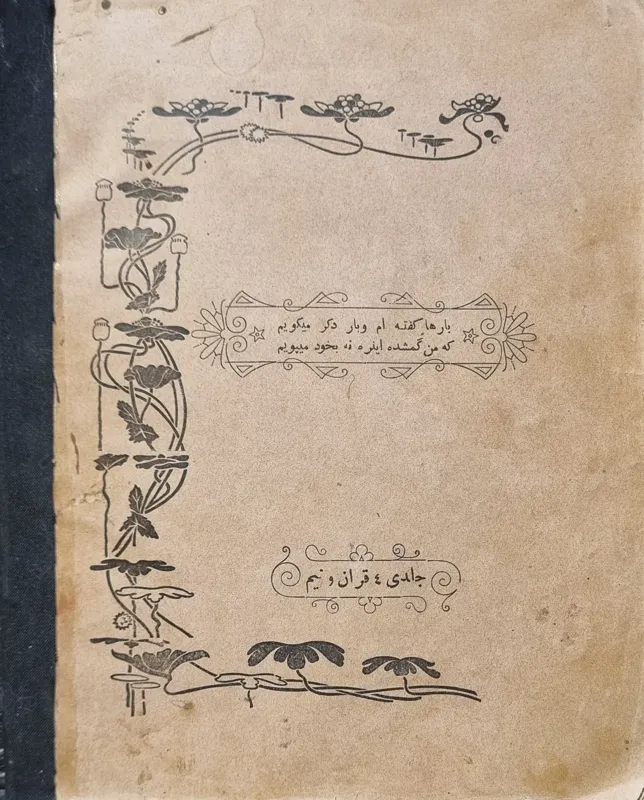 بارها گفته ام وبار دکر میکویم
که من گمشده اینره نه بخود میپویم
جلدی ٤ قران و نیم